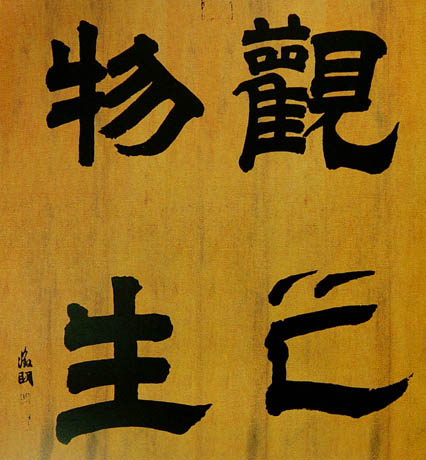 觀之
物生